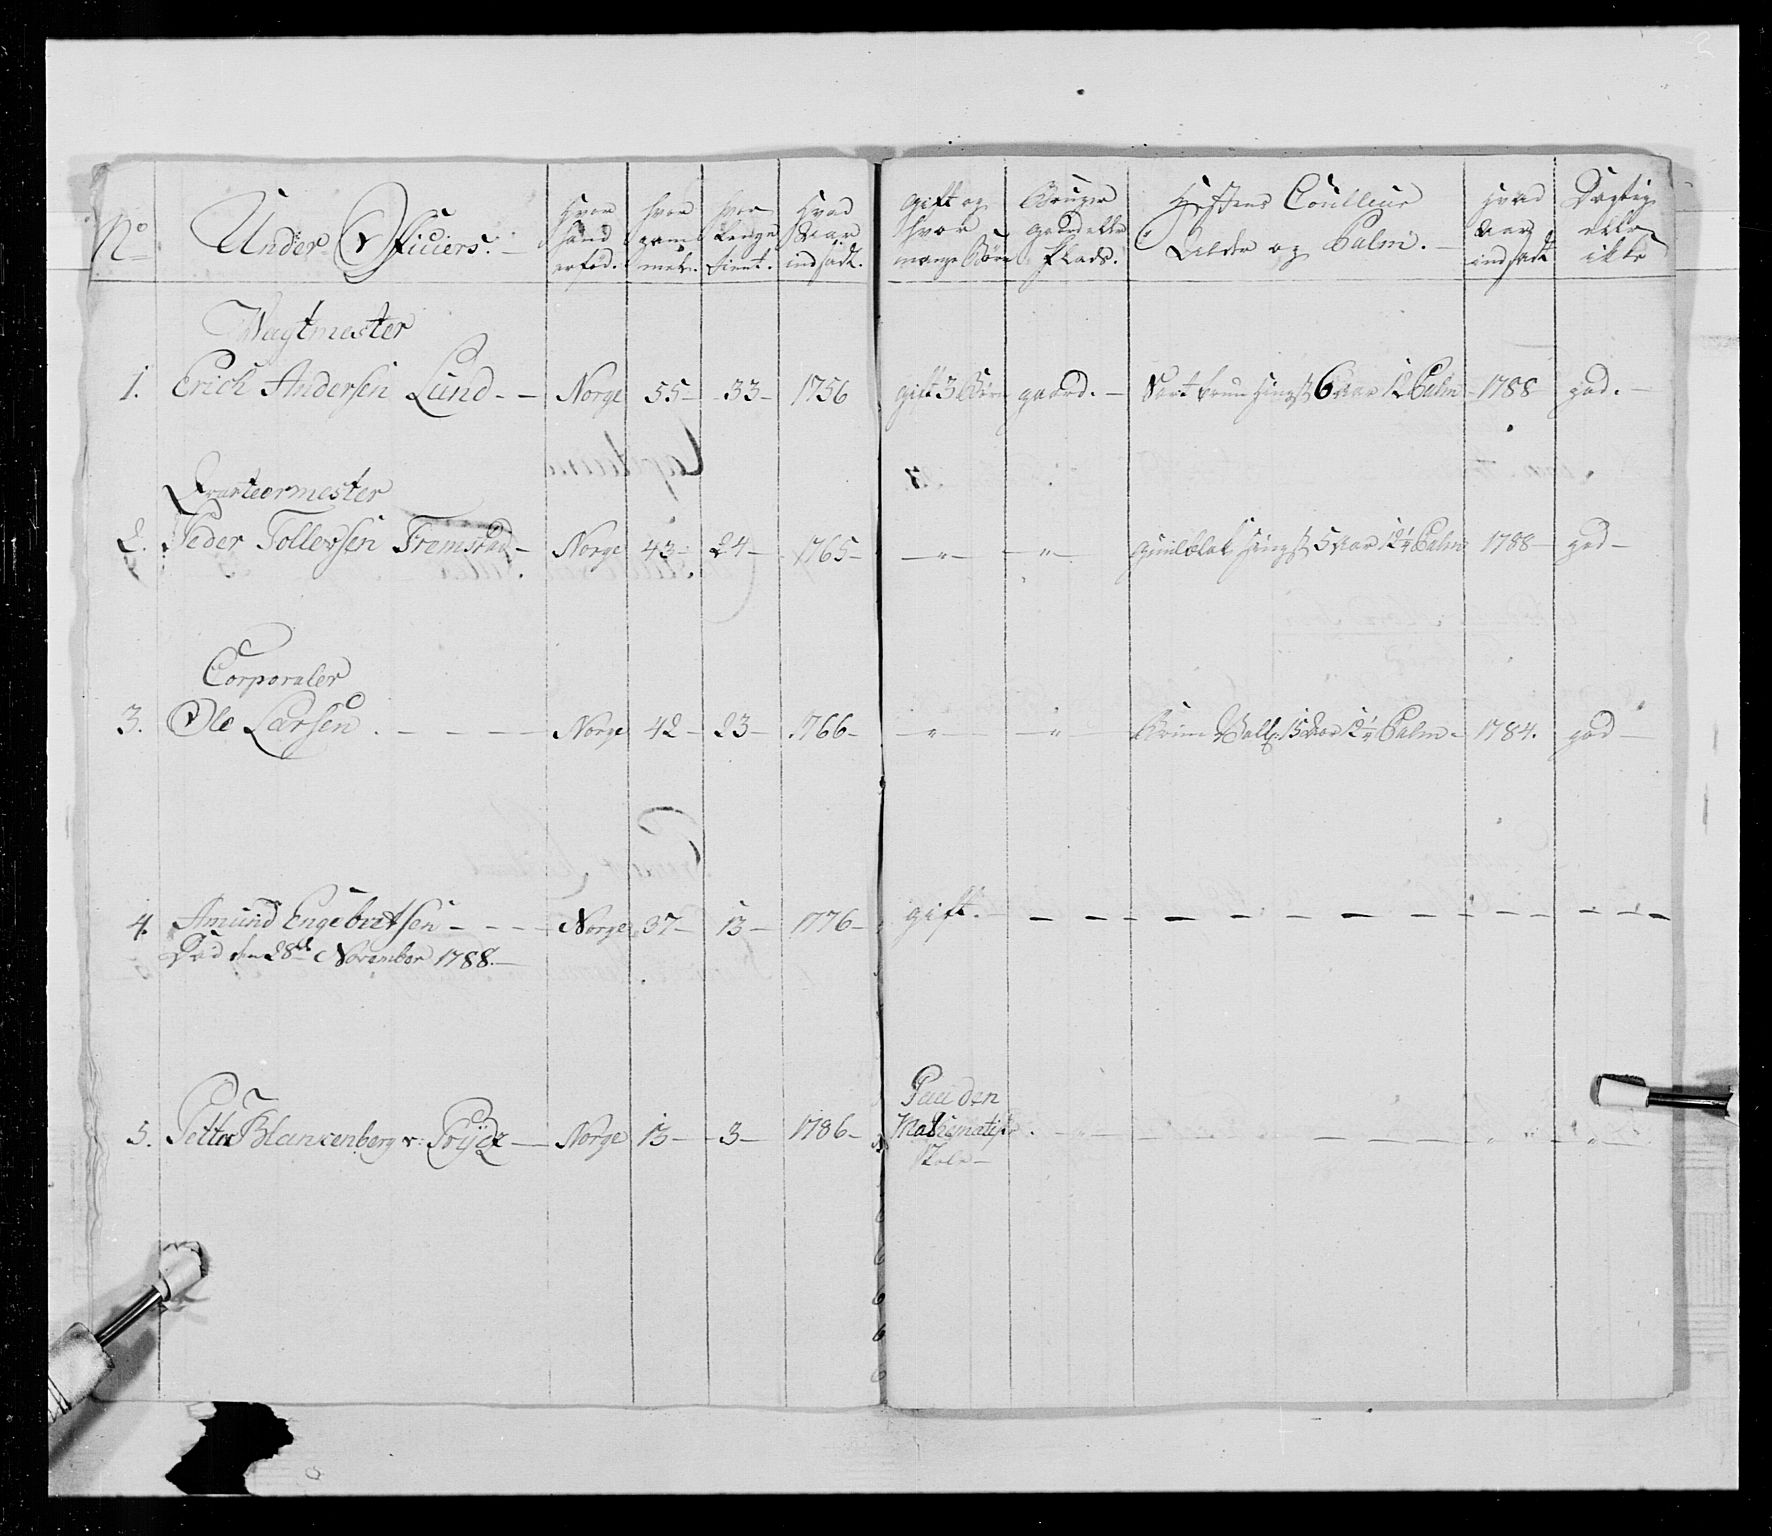 No Under Officiers. Hvor hand er fød. hvor gammel. hvor lenge tient. Hvad Aar indsadt. gift og hvor mange Børn Bruger gaard eller Plads. Hestens Coulleur Alder og Palm. Hvad Aar indsadt Dygtig eller ikke
Wagtmester
1. Erich Andersen Lund - - Norge 55 - 33 - 1756 gift 3 Børn gaard. - Sort brun Hingst 6 Aar 12 Palm - 1788 god. -
Qvarteermester
2. Peder Tollevsen Fremstad - Norge 43 - 24 - 1765 - - " - - " - Hingst 5 Aar 12 1/4 Palm 1788 - god -
Corporaler
3. Ole Larsen . - - - - Norge 42 - 23 - 1766 - - " - - " - Brun Vallk 15 Aar 12 1/4 Palm - 1784. god -
4. Amund Engebretsen - - - - Norge 37 - 13 - 1776 - gift. -
Død den 28de November 1788. -
5. Petter Blankenberg v. Prydz - Norge 13 - 3 - 1786 - Paa den
Mathematiske
Skole -